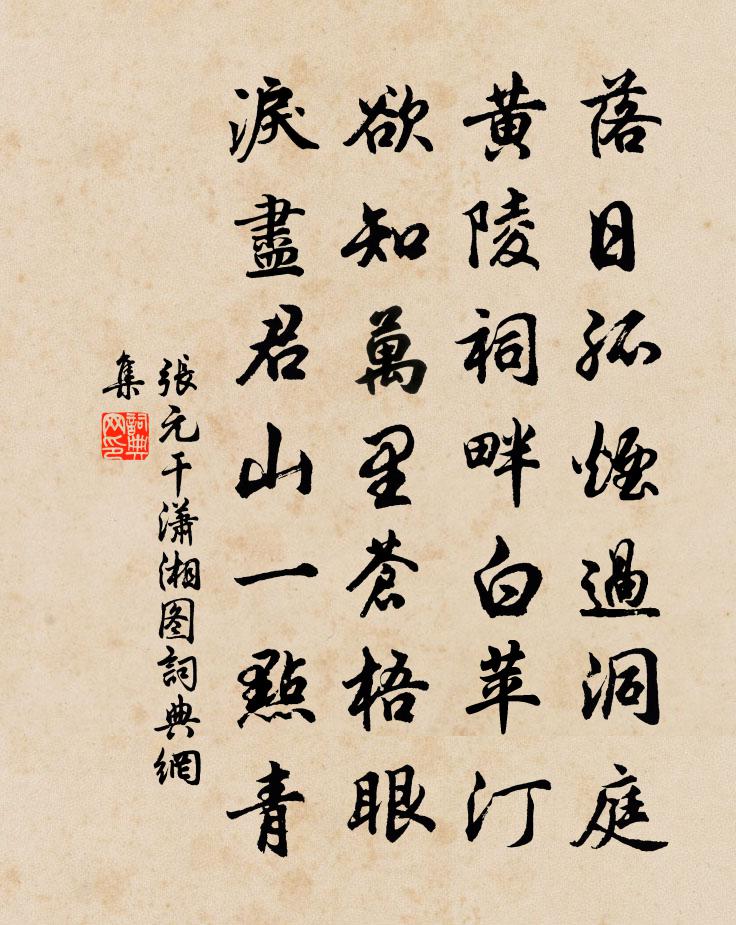 落日孤煙過洞庭
黃陵祠畔白苹汀
欲知萬里蒼梧眼
淚盡君山一點青
張元干瀟湘图詞典網
集
詞典
网印